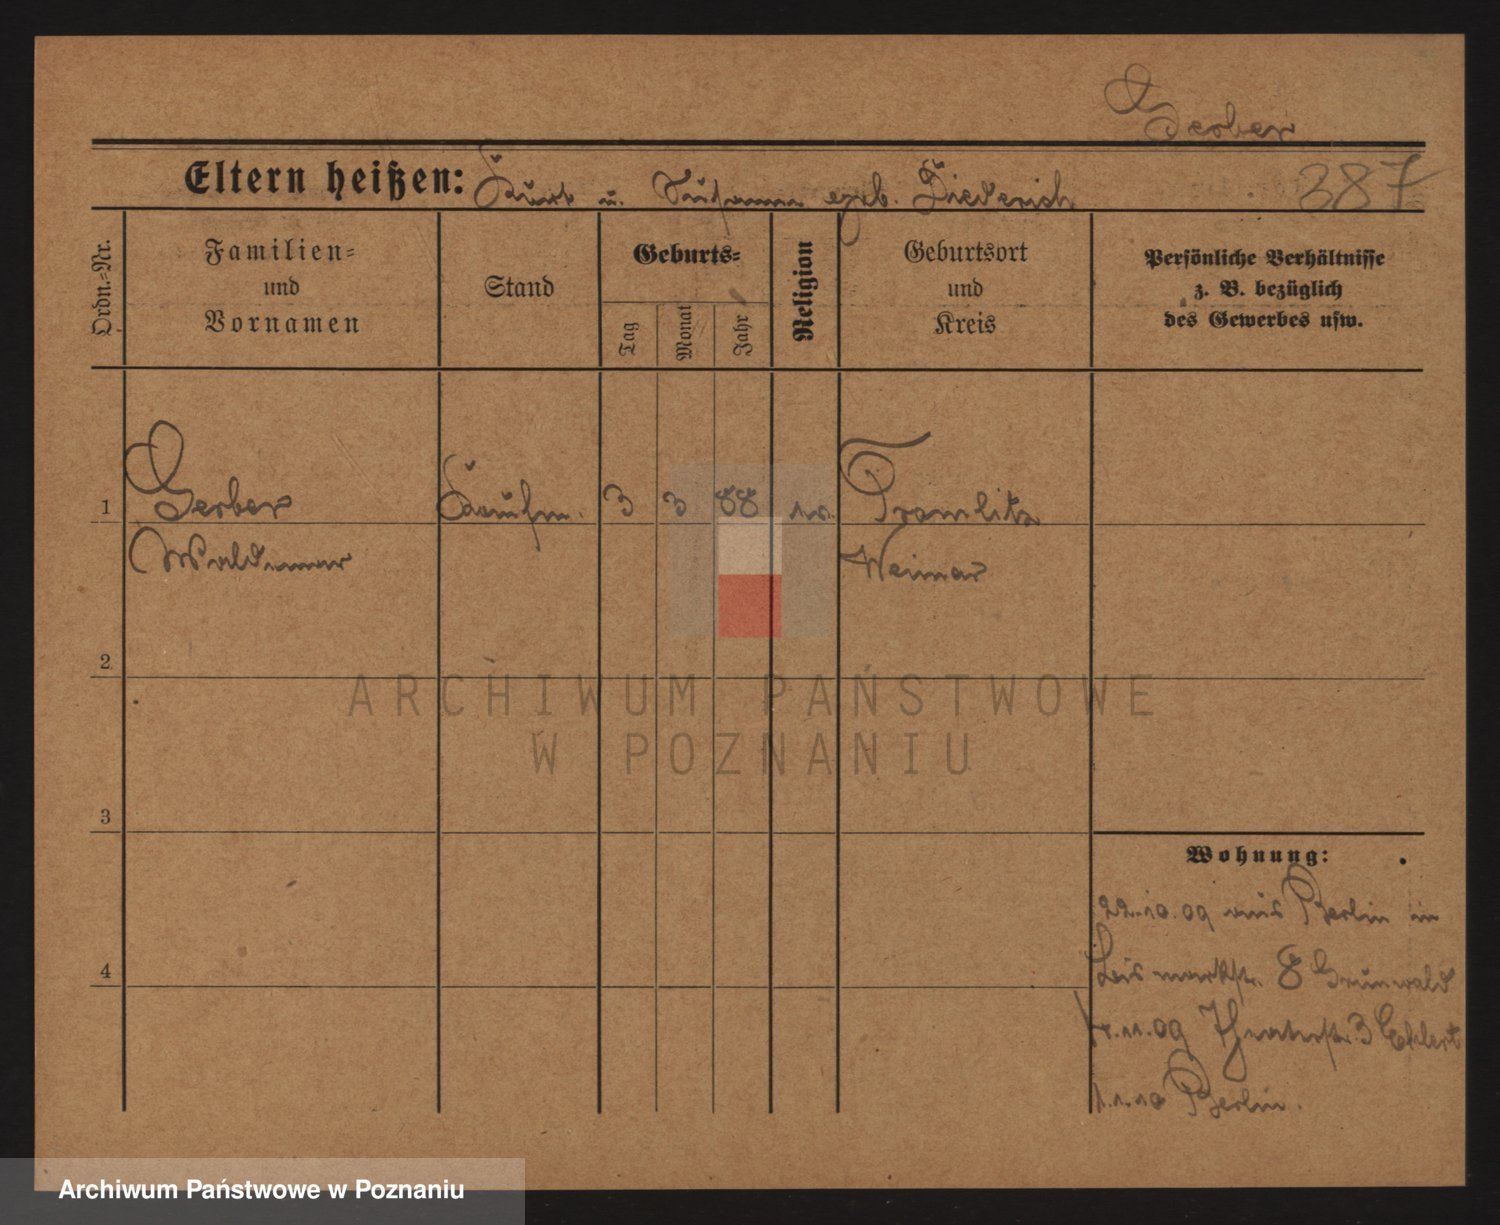 Gerber
Eltern heißen: Kurt u. Susanna geb. Diederich 387
Ordn.-Nr.
Familien-
und
Vornamen
Stand
Geburts-
Tag
Monat
Jahr
Religion
Geburtsort
und
Kreis
Persönliche Verhältnisse
z. B. bezüglich
des Gewerbes usw.
1 Gerber Kaufm. 3 3 88 Tromlitz
Waldemar Weimar
2
3
4
Wohnung:
22.10.09 aus Berlin in
8 Grunwald
11.09 Theaterstr. 3 Ehlert
1.1.10 Berlin.
ARCHIWUM PAŃSTWOWE
W POZNANIU
Archiwum Państwowe w Poznaniu